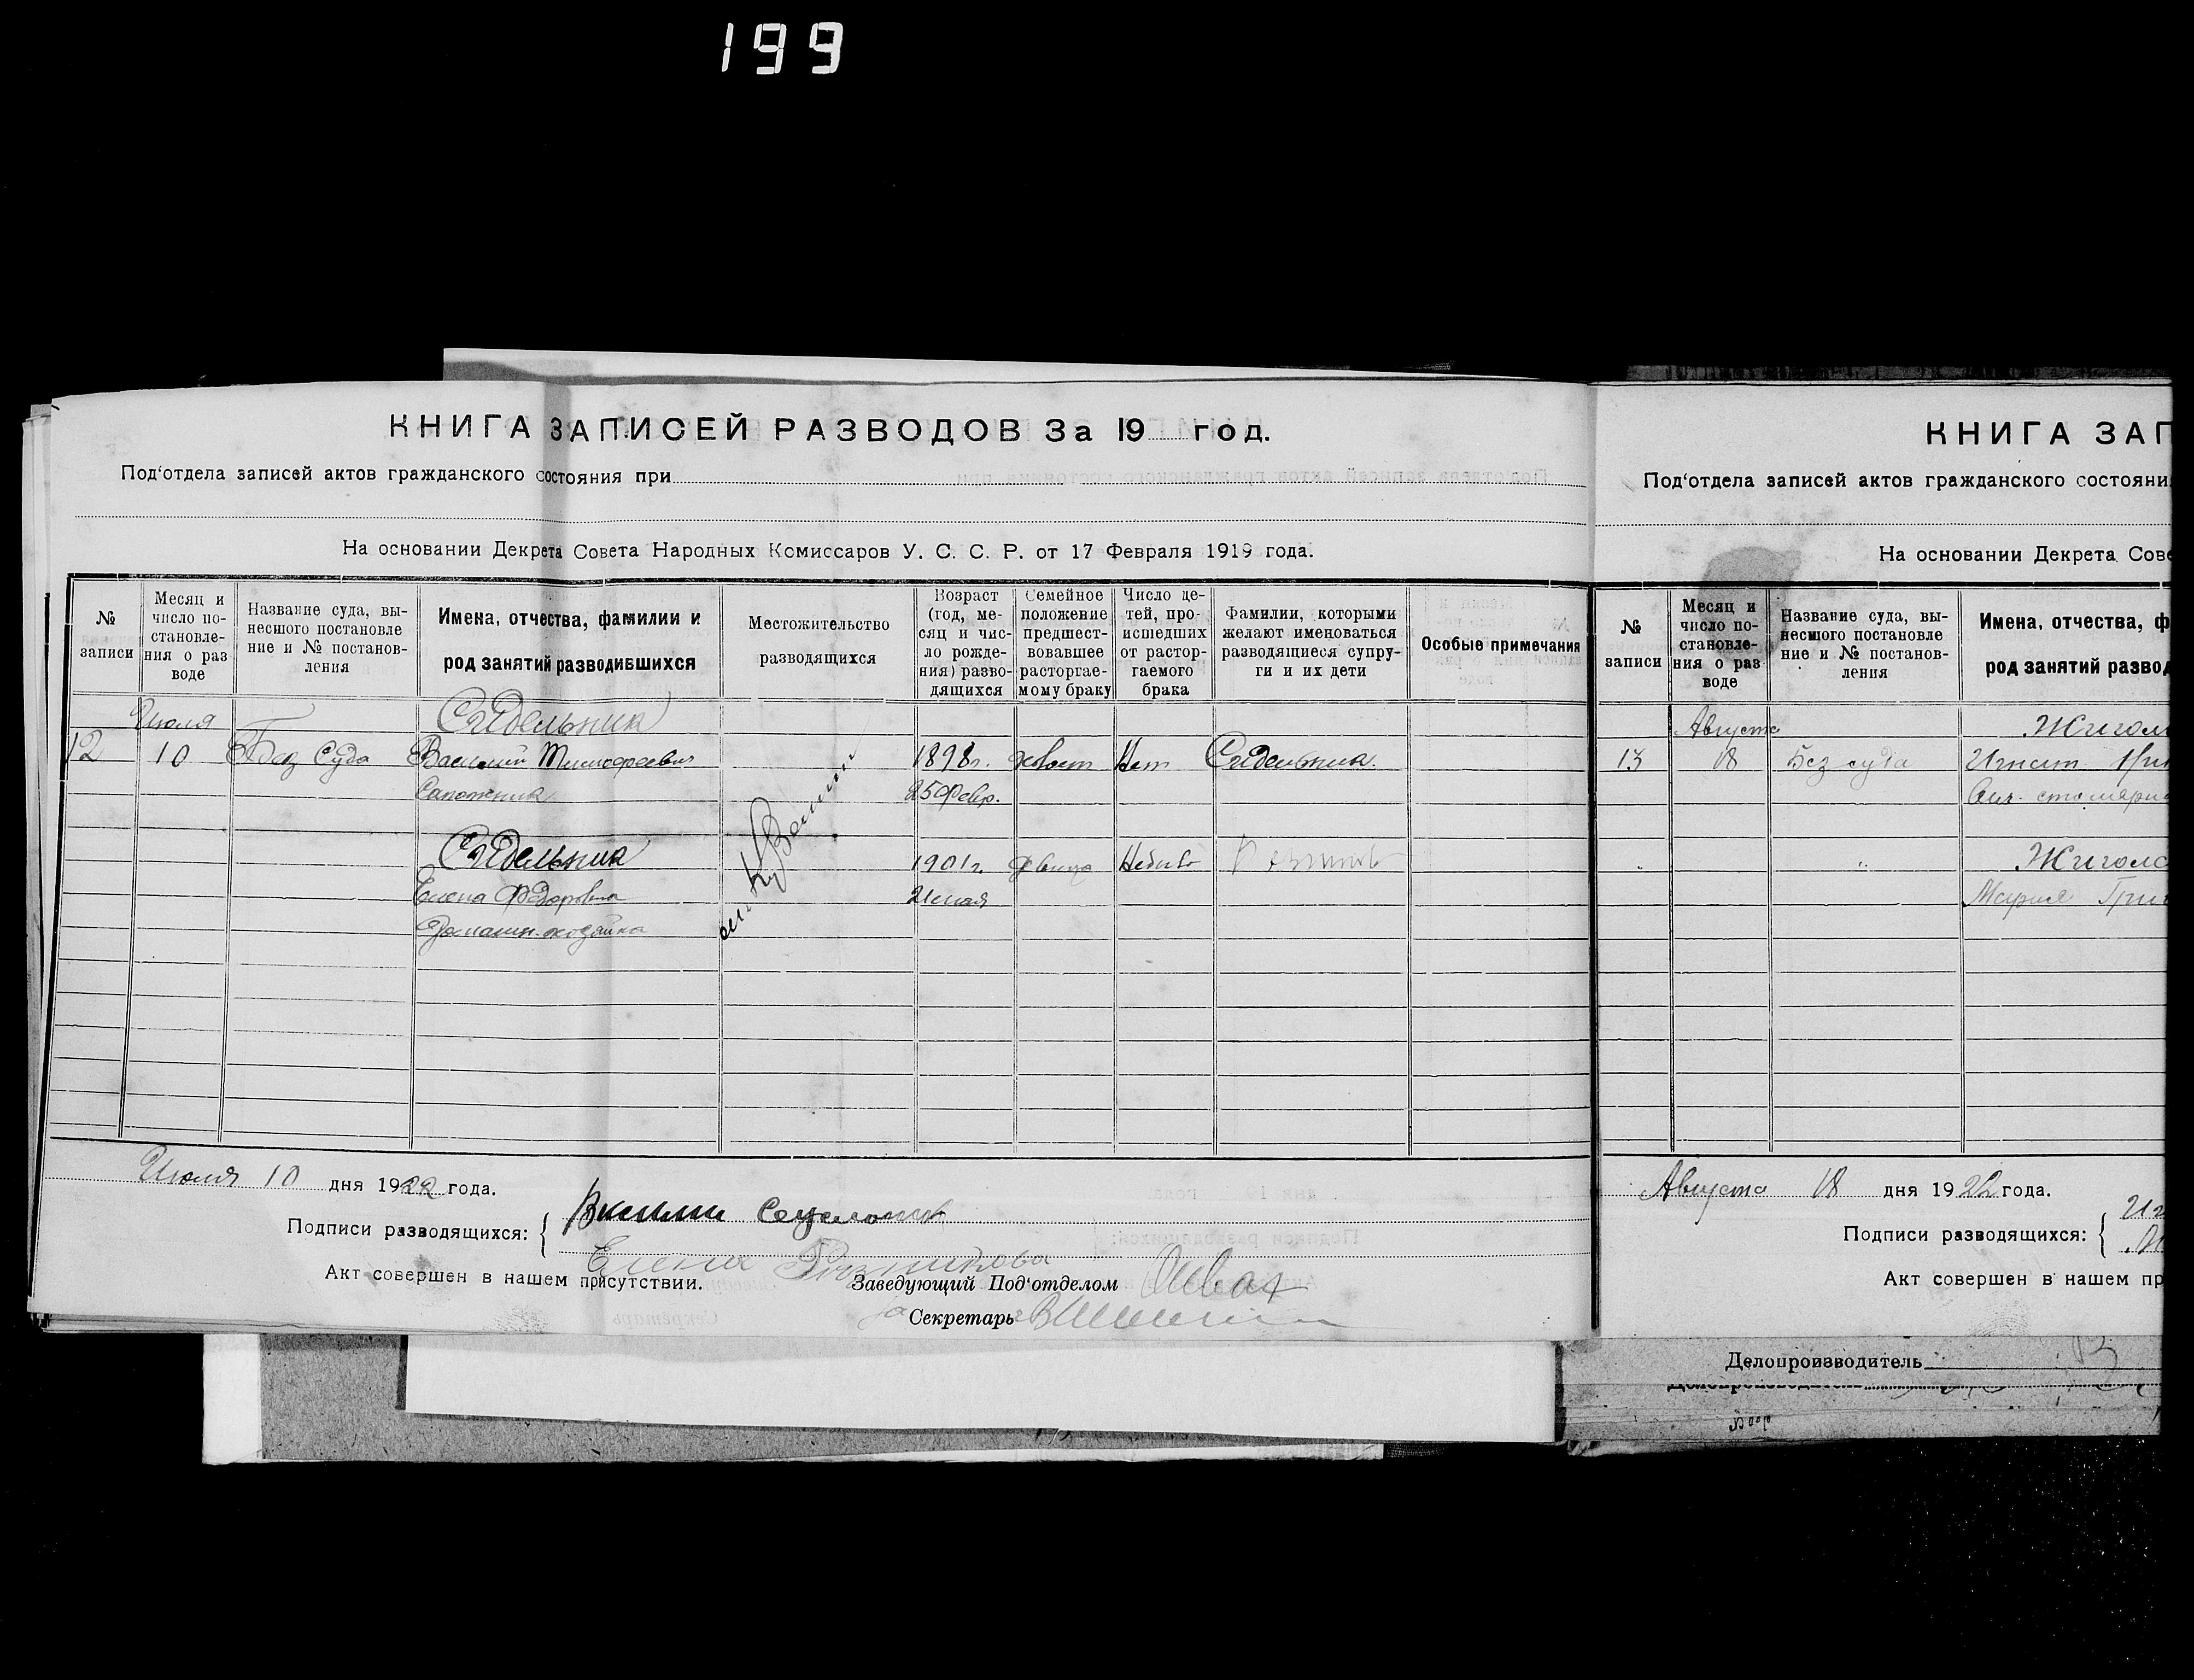 199
КНИГА ЗАПИСЕЙ РАЗВОДОВ За 19 год.
Под'отдела записей актов гражданского состояния при
На основании Декрета Совета Народных Комиссаров У. С. С. Р. от 17 Февраля 1919 года.
№ записи
Месяц и число по-становле-ния о раз воде
Название суда, вы-несшого постановле ние и № постанов-ления
Имена, отчества, фамилии и род занятий разводившихся
Местожительство разводящихся
Возраст (год, ме-сяц и чис-ло рожде-ния) разво-дящихся
Семейное положение предшест-вовавшее расторгае-мому браку
Число де-тей, про-исшедших от растор-гаемого брака
Фамилии, которыми желают именоваться разводящиеся супру-ги и их дети
Особые примечания
Июля Сидельник
12 10 Без Суда Василий Тимофеевич 1898г. холост Нет Сидельник.
Сапожник 25 Февр.
Сидельник
1901г. девица
Елена Федоровна
Домашн. хозяйка
Июля 10 дня 1922 года.
Подписи разводящихся: Василий
Елена
Акт совершен в нашем присутствии.
Заведующий Под'отделом
Секретарь
КНИГА ЗАП
Под'отдела записей актов гражданского состояни
На основании Декрета Сове
№ записи
Месяц и число по-становле-ния о раз воде
Название суда, вы-несшого постановле ние и № постанов-ления
Имена, отчества, ф
род занятий развод
Августа Жигол
13 18 Без суда Игнат Гри
Жигол
Мария Гри
Августа 18 дня 1922 года.
Подписи разводящихся:
Акт совершен в нашем пр
Делопроизводитель